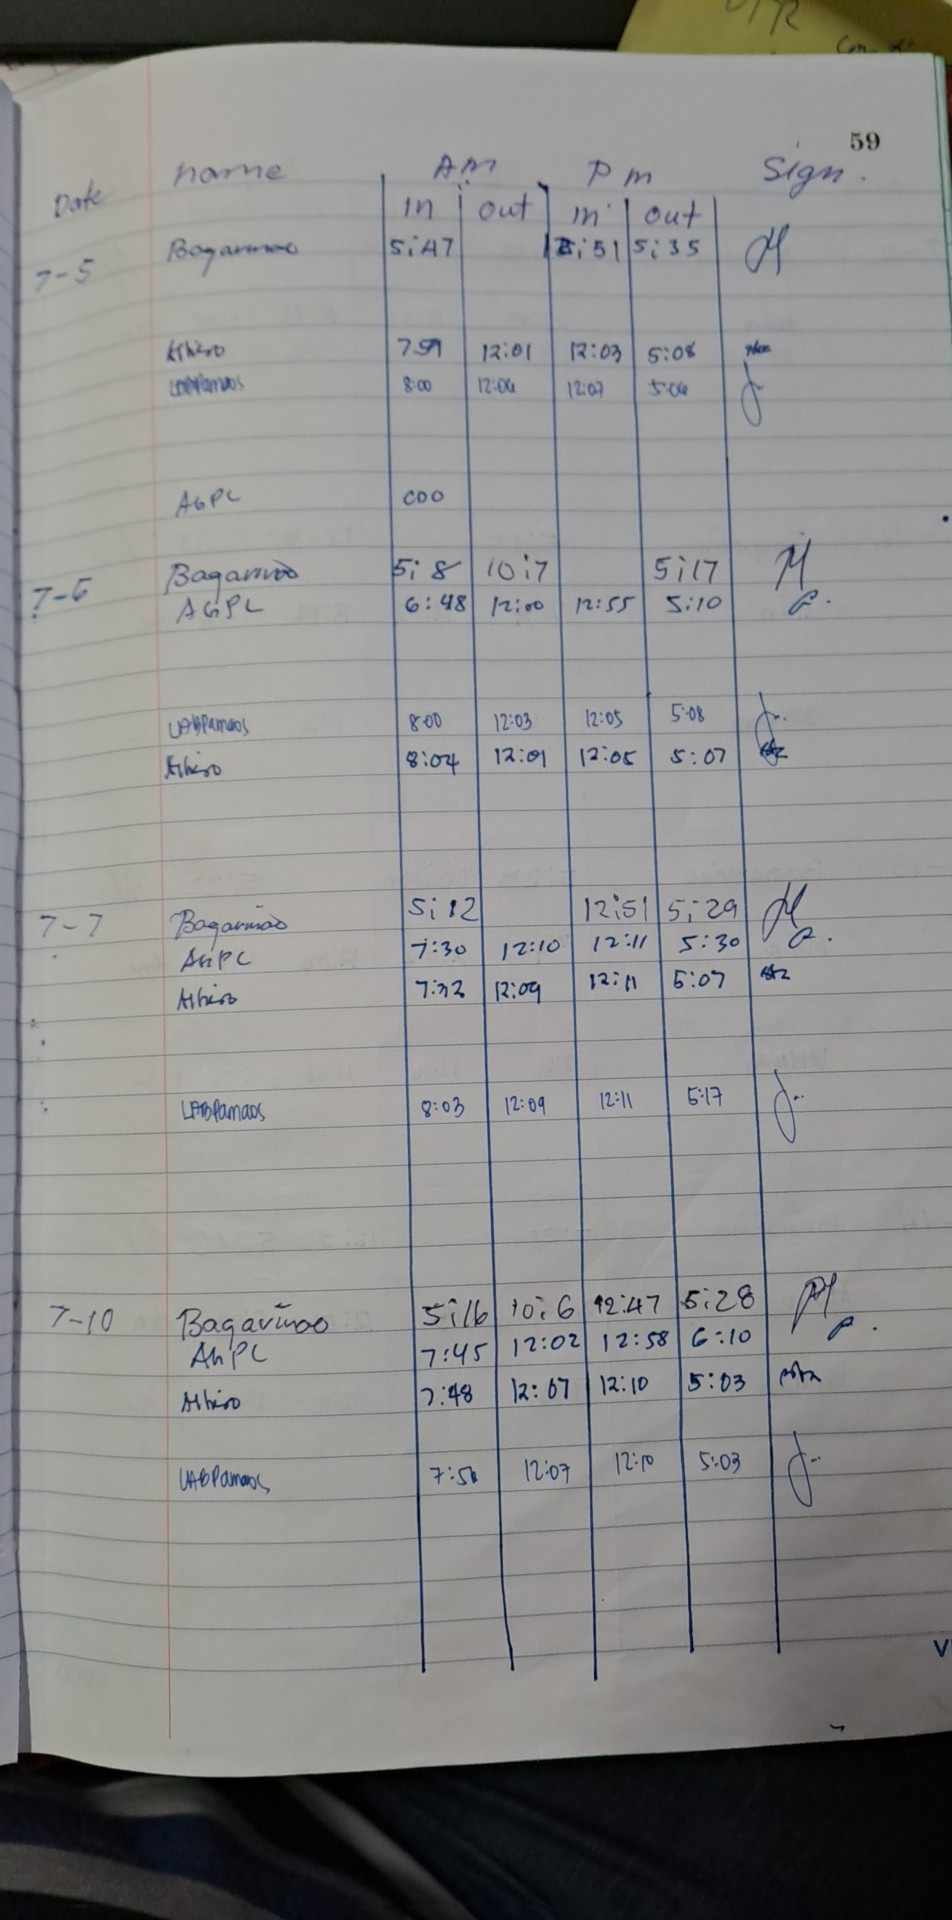 59
Date name AM Pm Sign.
in out in out
7-5 Bagarinao 5:47 12:51 5:35
Albiso 7:59 12:01 12:03 5:08
LABPamaos 8:00 12:06 12:07 5:06
AGPC COO
7-6 Bagarinao 5:8 10:7 5:17
AGPC 6:48 12:00 12:55 5:10
LABPamaos 8:00 12:03 12:05 5:08
Albiso 8:04 12:01 12:05 5:07
7-7 Bagarinao 5:12 12:51 5:29
AGPC 7:30 12:10 12:11 5:30
Albiso 7:32 12:09 12:11 5:07
LABPamaos 8:03 12:09 12:11 5:17
7-10 Bagarinao 5:16 10:6 12:47 5:28
AGPC 7:45 12:02 12:58 6:10
Albiso 7:48 12:07 12:10 5:03
LABPamaos 7:50 12:07 12:10 5:03